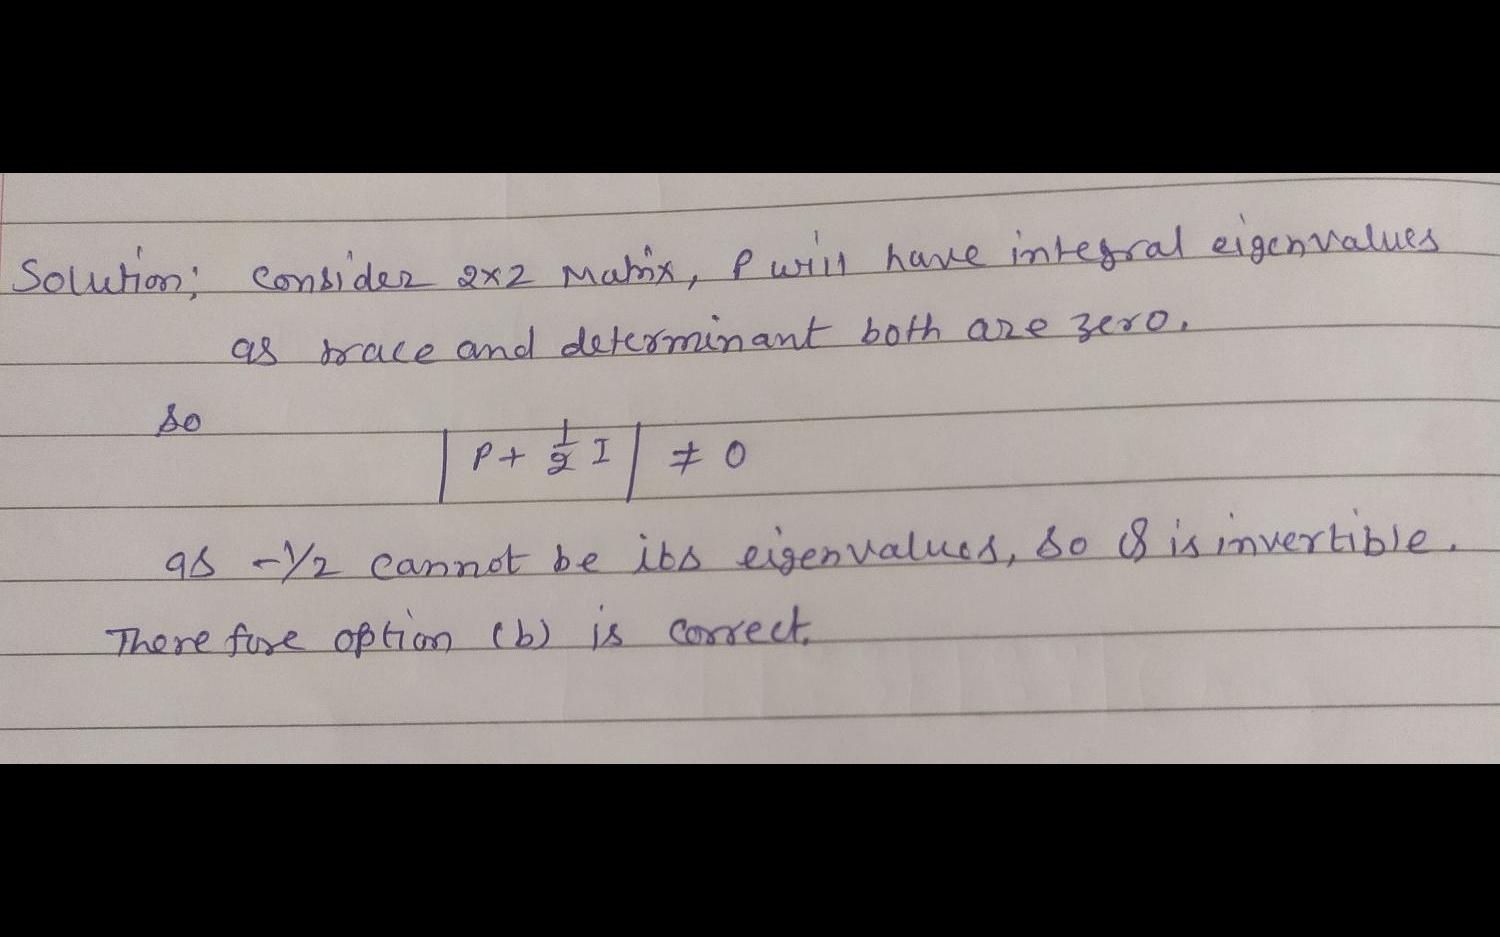 Solution; Consider 2×2 Matrix, P will have integral eigenvalues
as trace and determinant both are zero.
so
| P + 1/2 I | ≠ 0
as -1/2 cannot be its eigenvalues, so is invertible.
Therefore option (b) is correct.